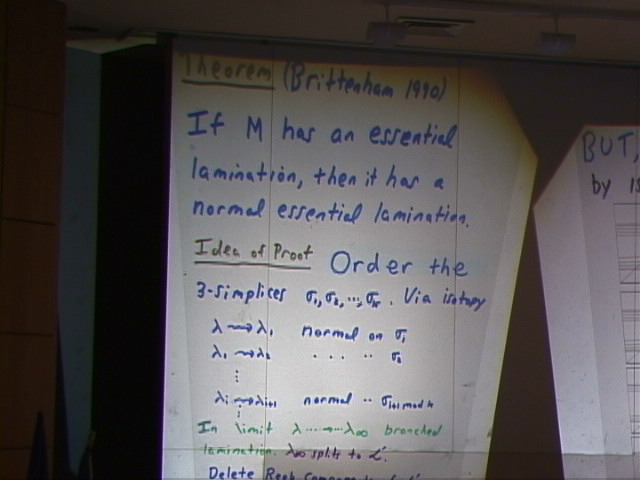 Theorem (Brittenham 1990)
If M has an essential
lamination, then it has a
normal essential lamination.
Idea of Proof Order the
3-simplices σ₁,σ₂,...,σₖ. Via isotopy
λ ⇝ λ₁ normal on σ₁
λ₁ ⇝ λ₂ . . . . ·· σ₂
⋮
λᵢ ⇝ λᵢ₊₁ normal ·· σᵢ₊₁ mod k
⋮
In limit λ ⇝ ··· ⇝ λ∞ branched
lamination. λ∞ splits to
Delete Reeb
BUT,
by